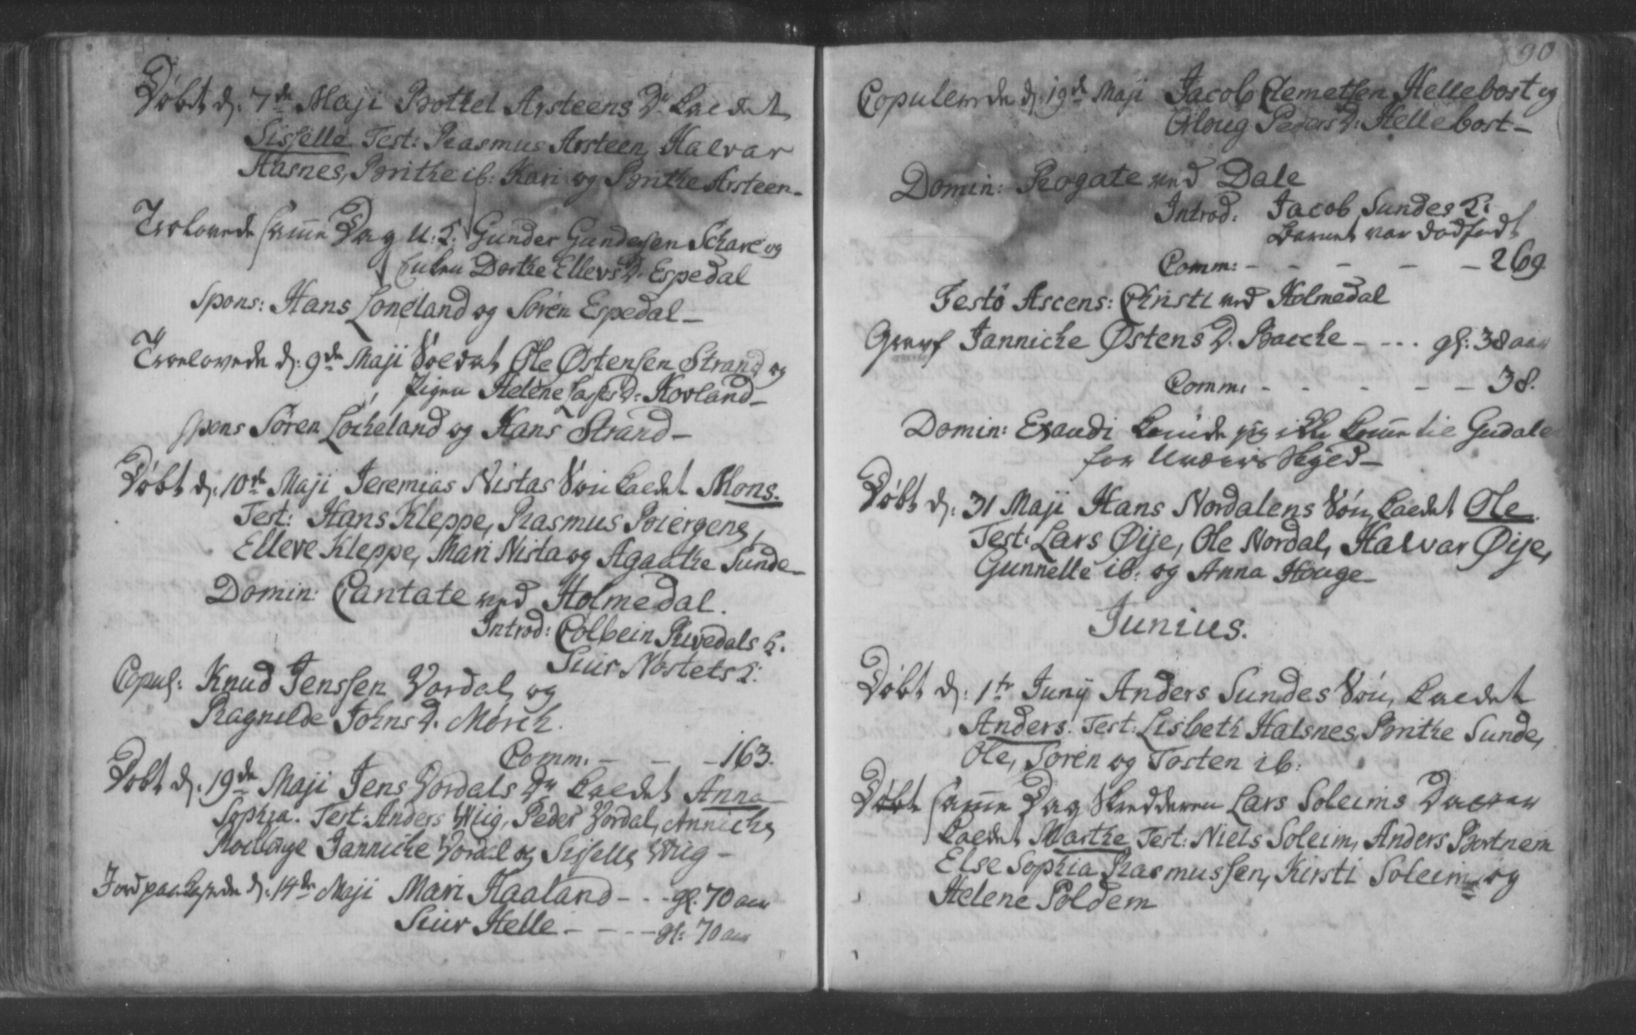 Døbt d: 7de Maji Bottel Arsteens Dr kaldet
Sisselle Test: Rasmus Arsteen, Halvar
Aasnes, Brithe ib: Kari og Brithe Arsteen
Trolovede samme Dag U: K: Gunder Gundersen Schare og
Enken Dorthe Ellevs D. Espedal
Spons: Hans Loneland og Søren Espedal
Trolovede d: 9de Maji Soldat Ole Østensen Strand og
Pigen Helene Lasses D: Hovland
Spons Søren Løcheland og Hans Strand
Døbt d: 10de Maji Jeremias Nistas Søn kaldet Mons.
Test: Hans Kleppe, Rasmus Biergene,
Elleve Kleppe, Mari Nista og Agaathe Sunde
Domin: Cantate ved Holmedal.
Introd: Colbein Rivedals K.
Siur Nøstets K:
Copul: Knud Jenssen Vordal og
Ragnilde Johns D. Mørch.
Comm. - - - 163.
Døbt d: 19de Maji Jens Vordals Dr kaldet Anna
Sophia. Test: Anders Wiig, Peder Vordal, Anniche
Jannicke Vordal og Siselle Wiig -
Jordpaakastede d: 14de Maji Mari Haaland - - - gl: 70 aar
Siur Helle - - - - gl: 70 aar
90
Copulerede d: 19de Maji Jacob Clemetsen Hellebost og
Oloug Peders D: Hellebost -
Domin: Rogate ved Dale
Introd: Jacob Sundes K:
Barnet var dødfødt
Comm: - - - - - 269
Festo Ascens: Christi ved Holmedal
Grevf Jannicke Østens D. Bacche - - - gl: 38 aar
Comm: - - - - - 38.
Domin: Exaudi kunde jeg ikke komme til Gudale
for Uveirs Skyld -
Døbt d: 31 Maji Hans Nordalens Søn kaldet Ole.
Test: Lars Øije, Ole Nordal, Halvar Øije,
Gunnelle ib: og Anna Houge
Junius.
Døbt d: 1te Junij Anders Sundes Søn, kaldet
Anders. Test: Lisbeth Halsnes, Brithe Sunde,
Ole, Søren og Tosten ib:
Døbt samme Dag Skredderen Lars Soleims Datter
kaldet Marthe Test: Niels Soleim, Anders Bortnem
Else Sophia Rasmussen, Kirsti Soleim og
Helene Poldem